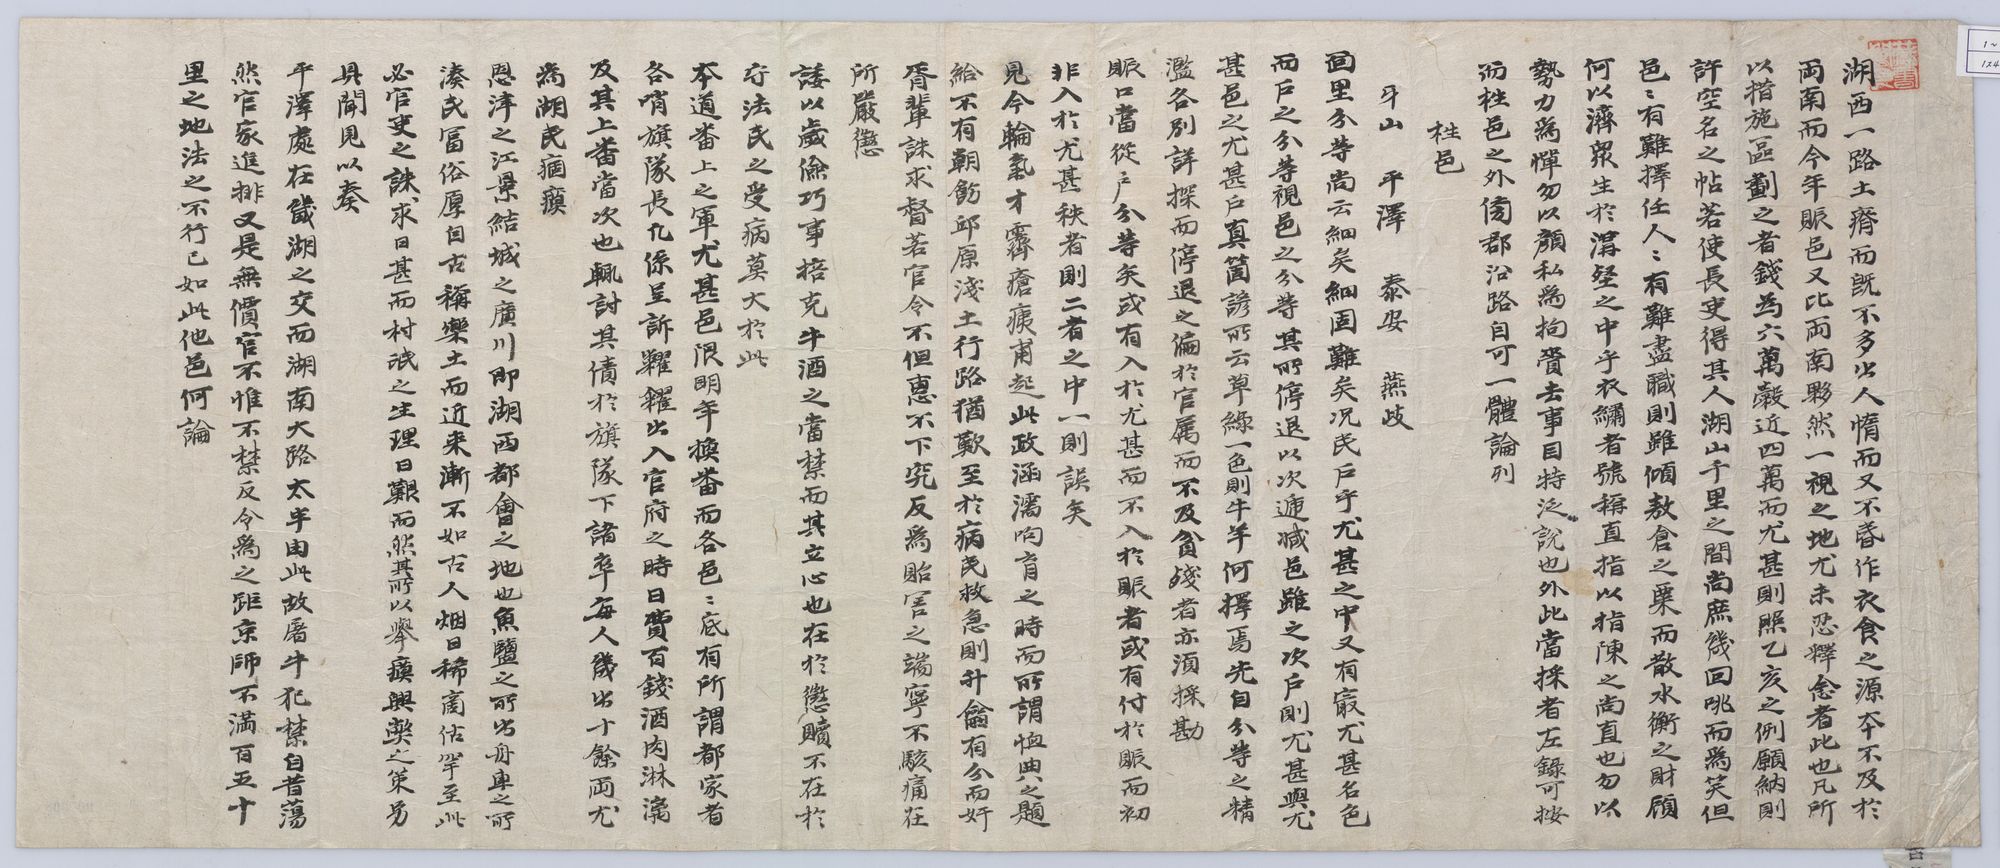 湖西一路土瘠而旣不多出人惰而又不昏作衣食之源本不及於
両南而今年賑邑又比両南夥然一視之地尤未忍釋念者此也凡所
以指施區劃之者錢爲六萬穀近四萬而尤甚則照乙亥之例願納則
許空名之帖若使長吏得其人湖山千里之間尚庶幾回咷而爲笑但
邑〻有難擇任人〻有難盡職則雖傾敖倉之粟而散水衡之財顧
何以濟衆生於溝壑之中乎衣繡者號稱直指以指陳之尚直也勿以
勢力爲憚勿以顔私爲拘賫去事目特泛說也外此當採者左錄可按
而栍邑之外傍郡沿路自可一體論列
栍邑
牙山 平澤 泰安 燕歧
面里分等尚云細矣細固難矣况民戶乎尤甚之中又有最尤甚名色
而戶之分等視邑之分等其所停退以次遞减邑雖之次戶則尤甚與尤
甚邑之尤甚戶真箇諺所云草綠一色則牛羊何擇焉先自分等之精
濫各別詳探而停退之偏於官属而不及貧殘者亦須採勘
賑口當從戶分等矣或有入於尤甚而不入於賑者或有付於賑而初
非入於尤甚秩者則二者之中一則誤矣
見今輪氣才霽瘡痍甫起此政涵濡呴育之時而所謂恤典之題
給不有朝飭邱原淺土行路猶歎至於病民救急則升龠有分而奸
胥輩誅求督若官令不但惠不下究反爲貽害之端寧不駭痛在
所嚴懲
諉以歲儉巧事掊克牛酒之當禁而其立心也在於懲贖不在於
守法民之受病莫大於此
本道番上之軍尤甚邑限明年換番而各邑〻底有所謂都家者
各哨旗隊長凡係呈訴糶糴出入官府之時日費百錢酒肉淋漓
及其上番當次也輒討其債於旗隊下諸卒每人幾出十餘両尤
爲湖民痼瘼
恩津之江景結城之廣川即湖西都會之地也魚鹽之所出舟車之所
湊民富俗厚自古稱樂土而近来漸不如古人烟日稀商估罕至此
必官吏之誅求日甚而村氓之生理日艱而然其所以擧瘼興樂之策另
具聞見以奏
平澤處在畿湖之交而湖南大路太半由此故屠牛犯禁自昔蕩
然官家進排又是無價官不惟不禁反令爲之距京師不滿百五十
里之地法之不行已如此他邑何論